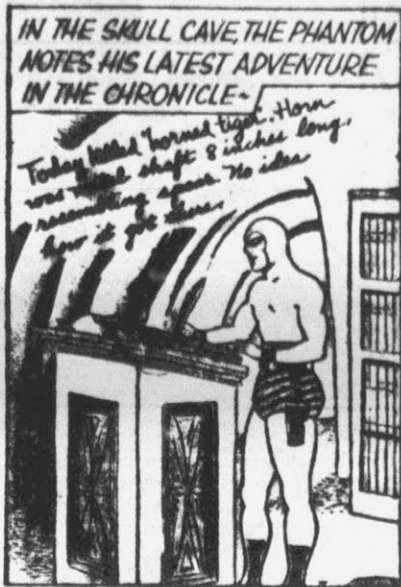 IN THE SKULL CAVE, THE PHANTOM
NOTES HIS LATEST ADVENTURE
IN THE CHRONICLE~
Today killed "horned tiger". Horn
was metal shaft 8 inches long,
resembling spear. No idea
how it got there.